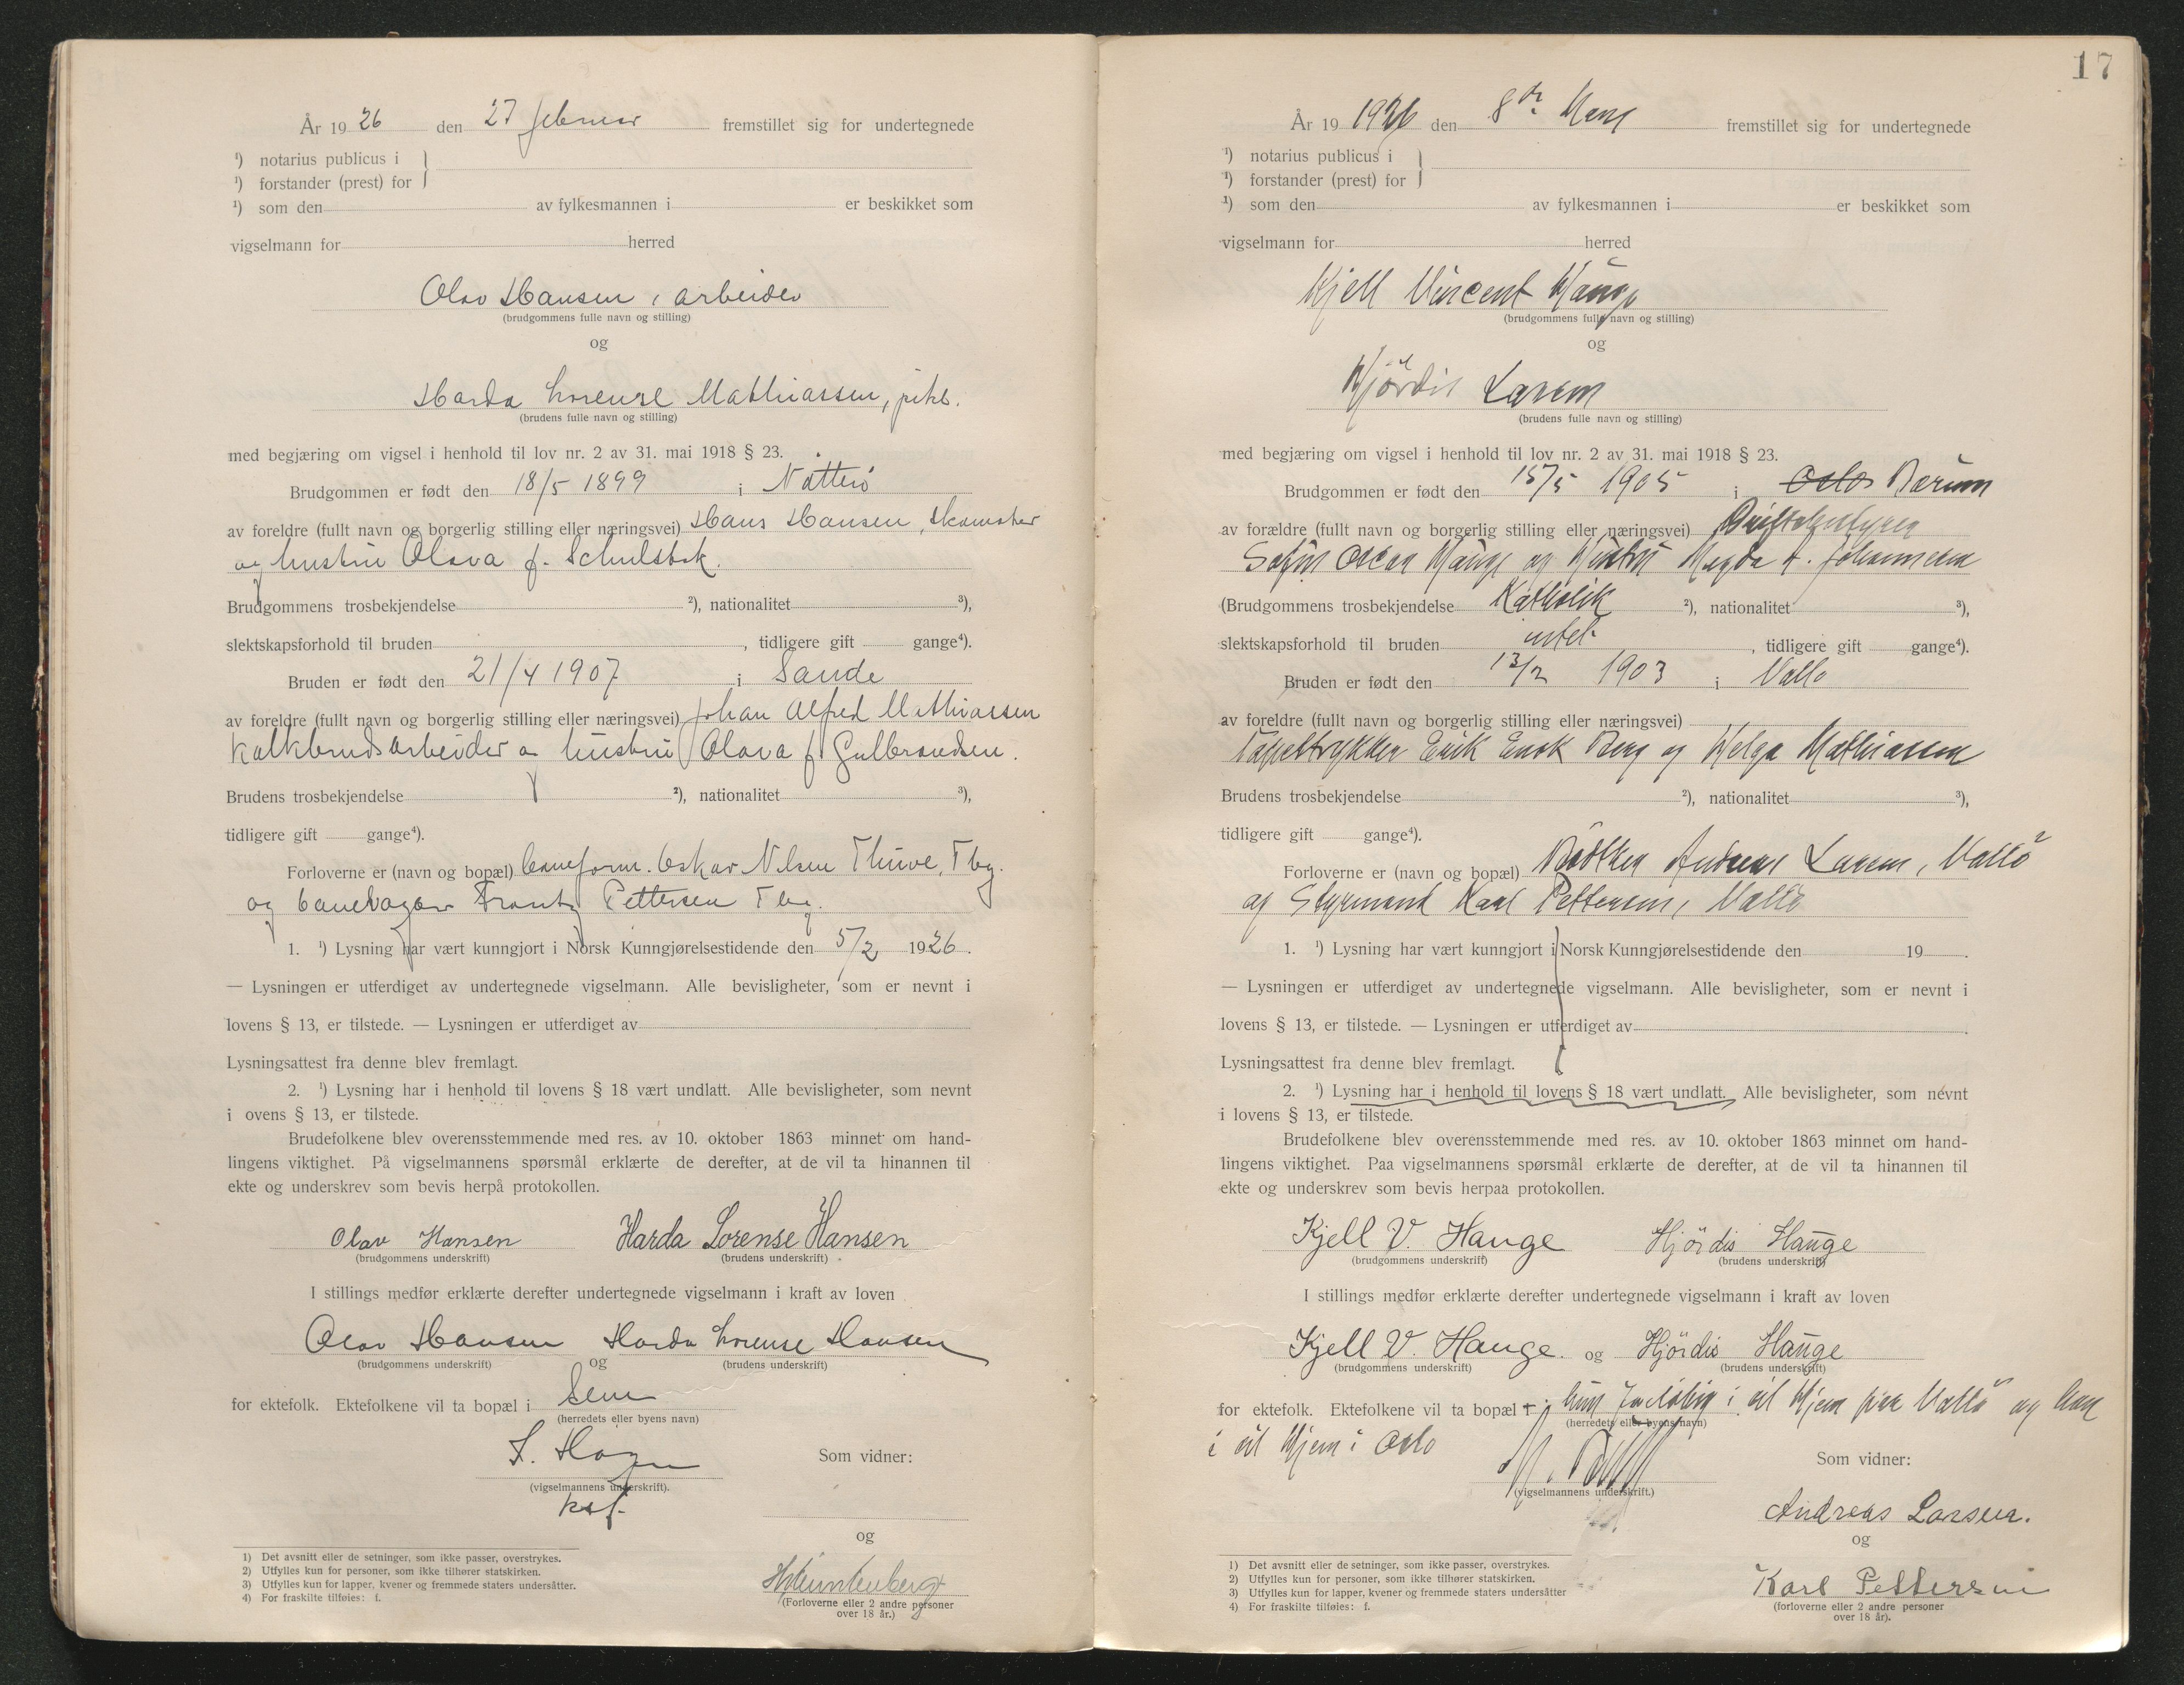 År 1926 den 27 februar fremstillet sig for undertegnede
¹) notarius publicus i
¹) forstander (prest) for
¹) som den av fylkesmannen i er beskikket som
vigselmann for herred
Olav Hansen, arbeider
(brudgommens fulle navn og stilling)
og
Harda Lorense Mathiassen, pike.
(brudens fulle navn og stilling)
med begjæring om vigsel i henhold til lov nr. 2 av 31. mai 1918 § 23.
Brudgommen er født den 18/5 1899 i Nötterö
av foreldre (fullt navn og borgerlig stilling eller næringsvei) Hans Hansen,
og hustru Olava f.
Brudgommens trosbekjendelse ²), nationalitet ³),
slektskapsforhold til bruden , tidligere gift gange⁴).
Bruden er født den 21/4 1907 i Sande
av foreldre (fullt navn og borgerlig stilling eller næringsvei) Johan Alfred Mathiassen
Kalkbrudsarbeider og hustru Olava f. Gulbrandsen.
Brudens trosbekjendelse ²), nationalitet ³),
tidligere gift gange⁴).
Forloverne er (navn og bopæl) baneform. Oskar Nilsen Thuve, Tbg.
og banevogter Frantz Pettersen Tbg.
1. ¹) Lysning har vært kunngjort i Norsk Kunngjørelsestidende den 5/2 1926.
— Lysningen er utferdiget av undertegnede vigselmann. Alle bevisligheter, som er nevnt i
lovens § 13, er tilstede. — Lysningen er utferdiget av
Lysningsattest fra denne blev fremlagt.
2. ¹) Lysning har i henhold til lovens § 18 vært undlatt. Alle bevisligheter, som nevnt
i ovens § 13, er tilstede.
Brudefolkene blev overensstemmende med res. av 10. oktober 1863 minnet om hand-
lingens viktighet. På vigselmannens spørsmål erklærte de derefter, at de vil ta hinannen til
ekte og underskrev som bevis herpå protokollen.
Olav Hansen Harda Lorense Hansen
(brudgommens underskrift) (brudens underskrift)
I stillings medfør erklærte derefter undertegnede vigselmann i kraft av loven
Olav Hansen og Harda Lorense Hansen
(brudgommens underskrift) (brudens underskrift)
for ektefolk. Ektefolkene vil ta bopæl i Sem
(herredets eller byens navn)
Som vidner:
(vigselmannens underskrift).
og
1) Det avsnitt eller de setninger, som ikke passer, overstrykes.
2) Utfylles kun for personer, som ikke tilhører statskirken.
3) Utfylles kun for lapper, kvener og fremmede staters undersåtter.
4) For fraskilte tilføies: f.
(Forloverne eller 2 andre personer
over 18 år.)
17
År 19 1926 den 8de Mars fremstillet sig for undertegnede
¹) notarius publicus i
¹) forstander (prest) for
¹) som den av fylkesmannen i er beskikket som
vigselmann for herred
Kjell Vincent Hauge
(brudgommens fulle navn og stilling)
og
Hjördis Larsen
(brudens fulle navn og stilling)
med begjæring om vigsel i henhold til lov nr. 2 av 31. mai 1918 § 23.
Brudgommen er født den 15/5 1905 i Oslo Bærum
av forældre (fullt navn og borgerlig stilling eller næringsvei) Driftsbestyrer
Oscar Hauge og Hustru Magda f. Johannesen
(Brudgommens trosbekjendelse Katholik ²), nationalitet ³),
slektskapsforhold til bruden intet , tidligere gift gange⁴).
Bruden er født den 13/2 1903 i Vallö
av foreldre (fullt navn og borgerlig stilling eller næringsvei)
Tapettrykker Erik Enok Berg og Helga Mathiassen
Brudens trosbekjendelse ²), nationalitet ³),
tidligere gift gange⁴).
Forloverne er (navn og bopæl) Bödtker Andreas Larsen, Vallö
og Styrmand Karl Pettersen, Vallö
1. ¹) Lysning har vært kunngjort i Norsk Kunngjørelsestidende den 19 .
— Lysningen er utferdiget av undertegnede vigselmann. Alle bevisligheter, som er nevnt i
lovens § 13, er tilstede. — Lysningen er utferdiget av .
Lysningsattest fra denne blev fremlagt.
2. ¹) Lysning har i henhold til lovens § 18 vært undlatt. Alle bevisligheter, som nevnt
i lovens § 13, er tilstede.
Brudefolkene blev overensstemmende med res. av 10. oktober 1863 minnet om hand-
lingens viktighet. Paa vigselmannens spørsmål erklærte de derefter, at de vil ta hinannen til
ekte og underskrev som bevis herpaa protokollen.
Kjell V. Hauge Hjördis Hauge
(brudgommens underskrift) (brudens underskrift)
I stillings medfør erklærte derefter undertegnede vigselmann i kraft av loven
Kjell V. Hauge. og Hjördis Hauge
(brudgommens underskrift) (brudens underskrift)
for ektefolk. Ektefolkene vil ta bopæl i: hun foreløbig i sit Hjem paa Vallö og han
(herredets eller byens navn)
i sit Hjem i Oslo
Som vidner:
(vigselmannens underskrift.)
Andreas Larsen.
og
Karl Pettersen
(forloverne eller 2 andre personer
over 18 år).
1) Det avsnitt eller de setninger, som ikke passer, overstrykes.
2) Utfylles kun for personer, som ikke tilhører statskirken.
3) Utfylles kun for lapper, kvener og fremmede staters undersåtter
4) For fraskilte tilføies: f.